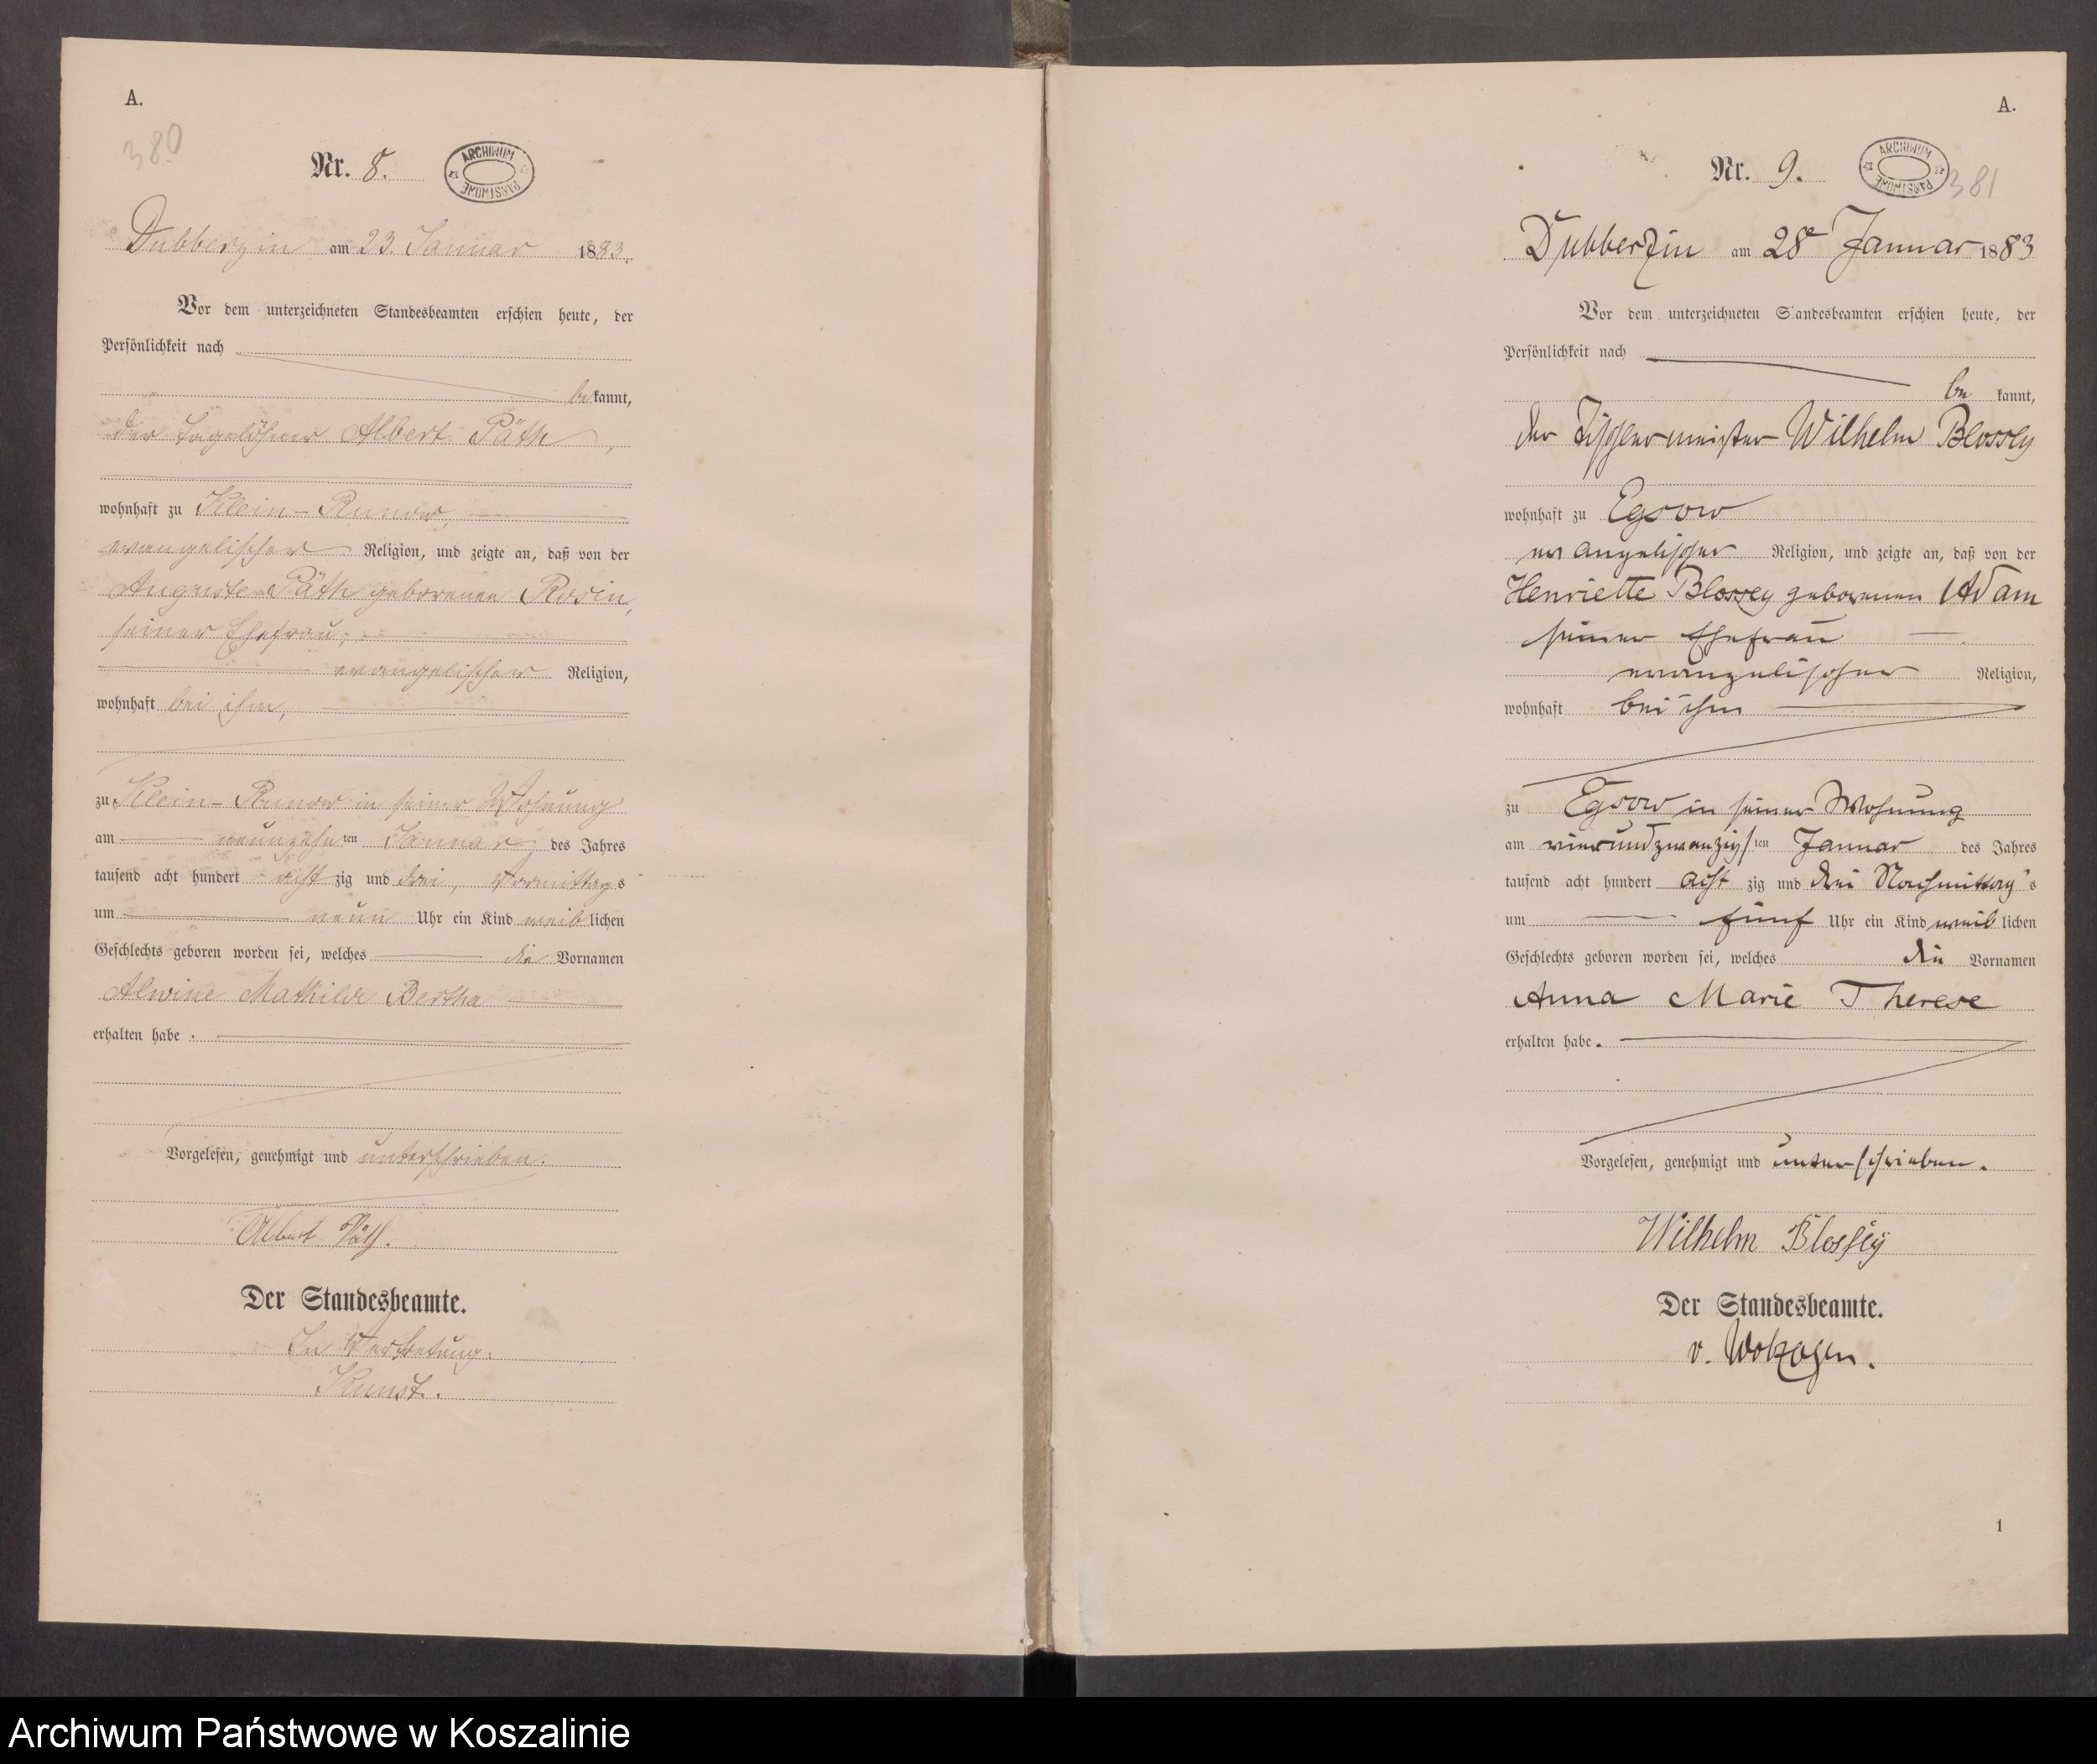 A.
380
Nr. 8.
ARCHIWUM PAŃSTWOWE
Dubberzin am 23. Januar 1883.
Vor dem unterzeichneten Standesbeamten erschien heute, der
Persönlichkeit nach
bekannt,
der Tagelöhner Albert Päth,
wohnhaft zu Klein-Runow,
evangelischer Religion, und zeigte an, daß von der
Auguste Päth geborenen Rosin,
seiner Ehefrau,
evangelischer Religion,
wohnhaft bei ihm,
zu Klein-Runow in seiner Wohnung
am neunzehnten Januar des Jahres
tausend acht hundert achtzig und drei, Vormittags
um neun Uhr ein Kind weiblichen
Geschlechts geboren worden sei, welches die Vornamen
Alwine Mathilde Bertha
erhalten habe.
Vorgelesen, genehmigt und unterschrieben.
Albert Päth.
Der Standesbeamte.
In Vertretung:
Kunst.
A.
Nr. 9.
ARCHIWUM PAŃSTWOWE
381
Dubberzin am 28 Januar 1883
Vor dem unterzeichneten Standesbeamten erschien heute, der
Persönlichkeit nach
be kannt,
der Tischlermeister Wilhelm Blossey
wohnhaft zu Egsow
evangelischer Religion, und zeigte an, daß von der
Henriette Blossey geborenen Adam
seiner Ehefrau
evangelischer Religion,
wohnhaft bei ihm
zu Egsow in seiner Wohnung
am vierundzwanzigsten Januar des Jahres
tausend acht hundert acht zig und drei Nachmittag's
um fünf Uhr ein Kind weiblichen
Geschlechts geboren worden sei, welches die Vornamen
Anna Marie Therese
erhalten habe.
Vorgelesen, genehmigt und unterschrieben.
Wilhelm Blossey
Der Standesbeamte.
v. Wolzogen.
1
Archiwum Państwowe w Koszalinie